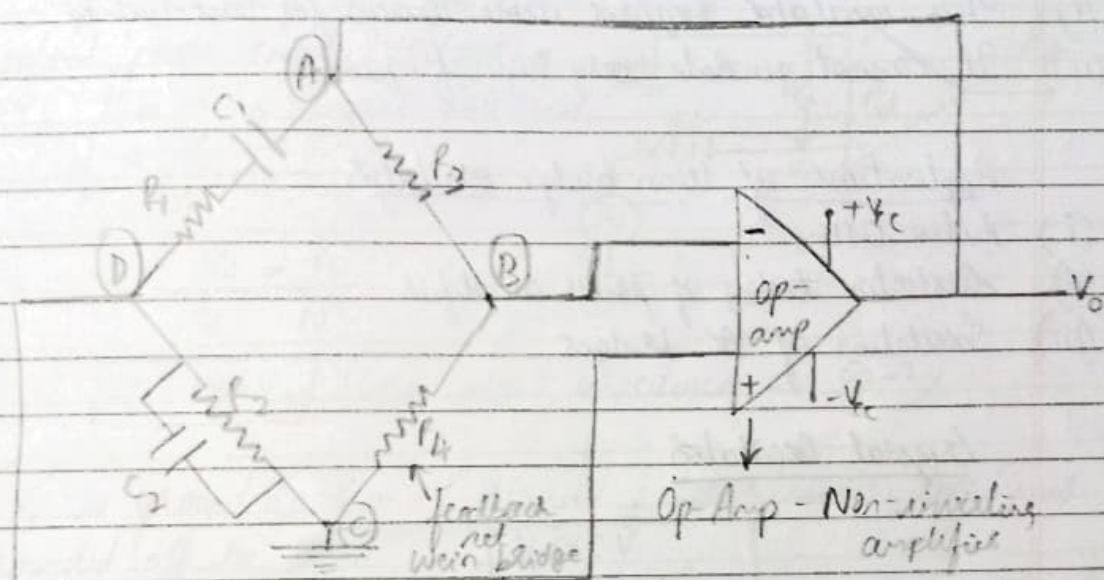 A
C1
R3
R1
D
B
-
+Vc
Op-
amp
V0
+
-Vc
R2
C2
R4
C
feedback
net
wein bridge
Op-Amp - Non-inverting
amplifier